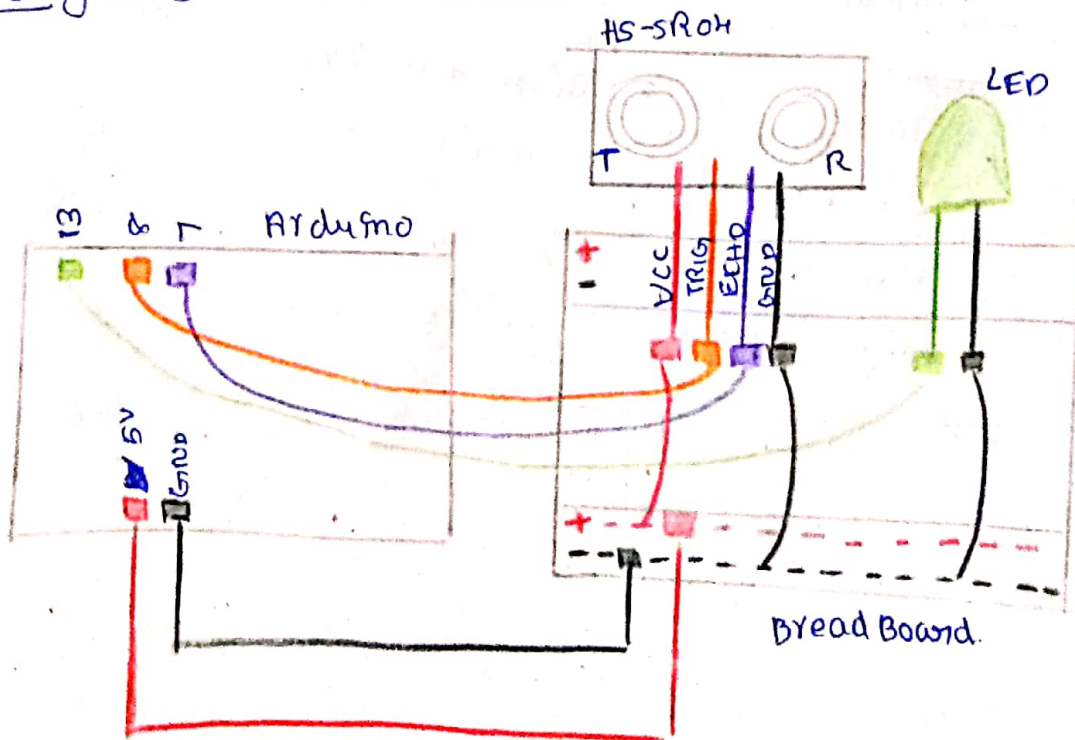 HS-SR04
LED
T
R
13
8
7
Arduino
+
-
VCC
TRIG
ECHO
GND
5V
GND
+
-
Bread Board.